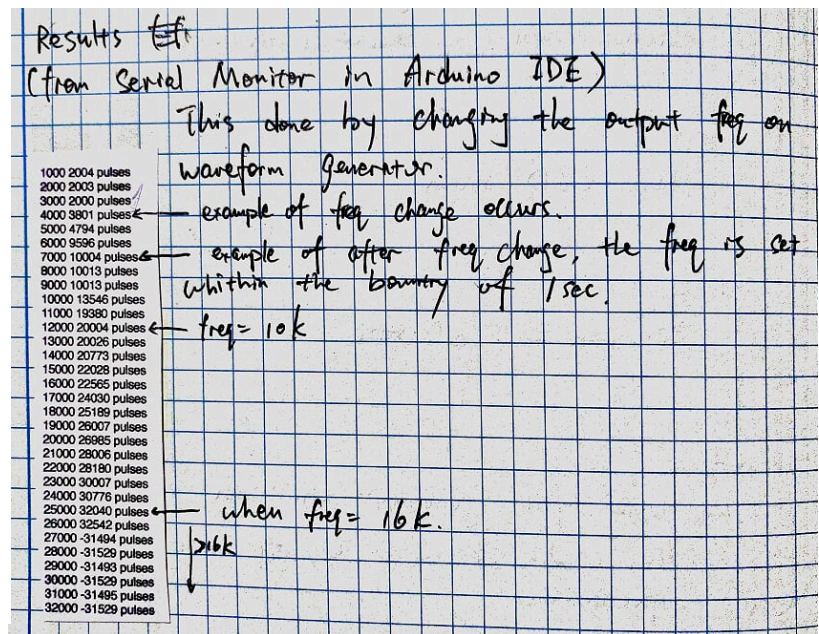 Results
(from Serial Monitor in Arduino IDE)
This done by changing the output freq on
waveform generator.
1000 2004 pulses
2000 2003 pulses
3000 2000 pulses
4000 3801 pulses ← example of freq change occurs.
5000 4794 pulses
6000 9596 pulses
7000 10004 pulses ← example of after freq change, the freq is set
whithin the bountry of 1 sec.
8000 10013 pulses
9000 10013 pulses
10000 13546 pulses
11000 19380 pulses
12000 20004 pulses ← freq = 10k
13000 20026 pulses
14000 20773 pulses
15000 22028 pulses
16000 22565 pulses
17000 24030 pulses
18000 25189 pulses
19000 26007 pulses
20000 26985 pulses
21000 28006 pulses
22000 28180 pulses
23000 30007 pulses
24000 30776 pulses
25000 32040 pulses ← when freq = 16k.
26000 32542 pulses
27000 -31494 pulses
>16k
28000 -31529 pulses
29000 -31493 pulses
30000 -31529 pulses
31000 -31495 pulses
32000 -31529 pulses